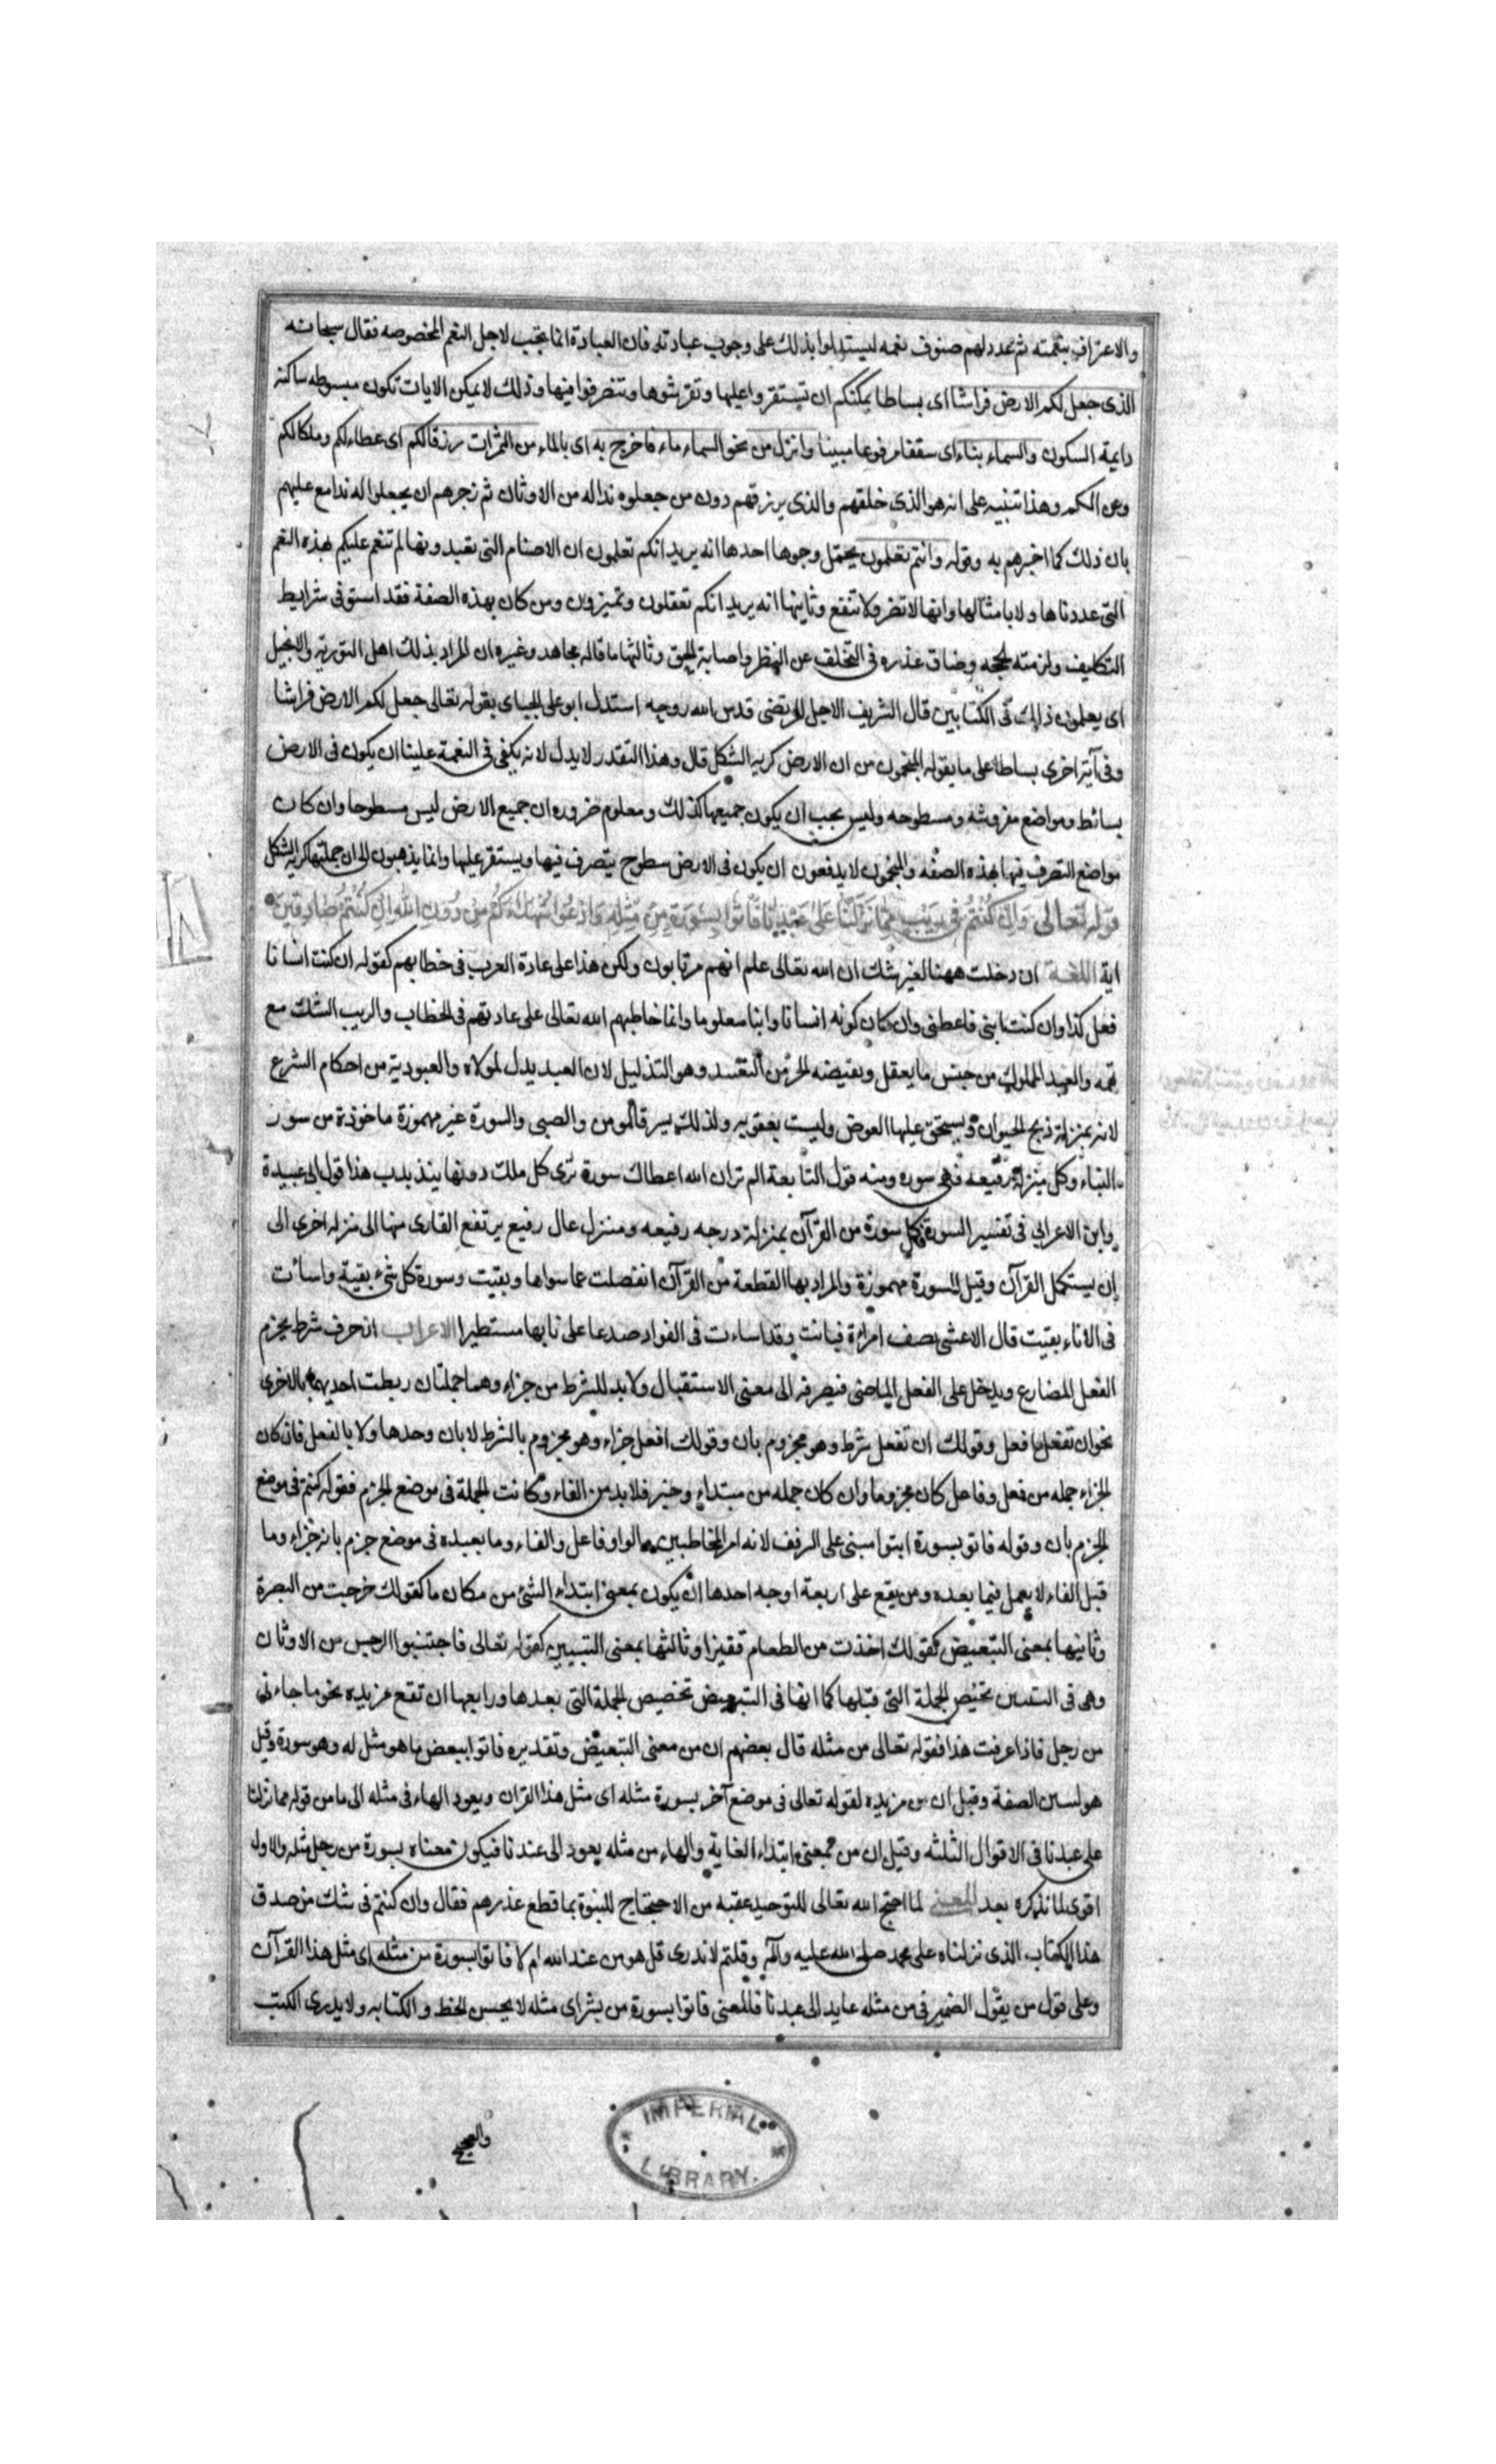 والاعتراف بنعمته ثم عدد لهم صنوف نعمه ليستدلوا بذلك على وجوب عبادته فان العبادة انما تجب لاجل النعم المخصوصه فقال سبحانه
الذى جعل لكم الارض فراشا اى بساطا يمكنكم ان تستقروا عليها وتفرشوها وتتصرفوا فيها وذلك لا يمكن الا بان تكون مبسوطه ساكنة
دايمة السكون والسماء بناء اى سقفا مرفوعا مبينا وانزل من نحو السماء ماء فاخرج به اى بالماء من الثمرات رزقا لكم اى عطاء لكم وملكا لكم
وعن الكم وهذا تنبيه على انه هو الذى خلقهم والذى يرزقهم دون من جعلوه ندا له من الاوثان ثم زجرهم ان يجعلوا له ندا مع عليهم
بان ذلك كما اخبرهم به وقوله وانتم تعلمون يحتمل وجوها احدها انه يريد انكم تعلمون ان الاصنام التى تعبدونها لم تنعم عليكم بهذه النعم
التى عددناها ولا بامثالها وانها لا تضر ولا تنفع وثانيها انه يريد انكم تعقلون وتميزون ومن كان بهذه الصفة فقد استوفى شرايط
التكليف ولزمته الحجه وضاق عذره فى التخلف عن النظر واصابة الحق وثالثها ما قاله مجاهد وغيره ان المراد بذلك اهل التورية والانجيل
اى يعلمون ذلك فى الكتابين قال الشريف الاجل المرتضى قدس الله روحه استدل ابو على الجباى بقوله تعالى جعل لكم الارض فراشا
وفى آية اخرى بساطا على ما يقوله المنجمون من ان الارض كرية الشكل قال وهذا القدر لا يدل لانه يكفى فى النعمة علينا ان يكون فى الارض
بسائط ومواضع مفروشه ومسطوحه وليس يجب ان يكون جميعها كذلك ومعلوم ضروره ان جميع الارض ليس مسطوحا وان كان
مواضع التصرف فيها بهذه الصفه والمنجمون لا يدفعون ان يكون فى الارض سطوح يتصرف فيها ويستقر عليها وانما يذهبون الى ان جملتها كرية الشكل
قوله تعالى وَاِنْ كُنْتُمْ فِى رَيْبٍ مِمَّا نَزَّلْنَا عَلَى عَبْدِنَا فَاْتُوا بِسُورَةٍ مِنْ مِثْلِهِ وَادْعُوا شُهَدَاءَكُمْ مِنْ دُونِ اللهِ اِنْ كُنْتُمْ صَادِقِينَ
اية اللغة ان دخلت ههنا لغير شك ان الله تعالى علم انهم مرتابون ولكن هذا على عادة العرب فى خطابهم كقوله ان كنت انسانا
فعل كذا وان كنت ابنى فاعطنى وان كان كونه انسانا وابنا معلوما وانما خاطبهم الله تعالى على عادتهم فى الخطاب والريب الشك مع
تهمه والعبد المملوك من جنس ما يعقل ونقيضه الحر من التعبد وهو التذليل لان العبد يدل لمولاه والعبودية من احكام الشرع
لانه بمنزلة ذبح الحيوان ويستحق عليها العوض وليست بعقوبه ولذلك يسرق المومن والصبى والسورة غير مهموزة ماخوذة من سور
البناء وكل منزلة رفيعه فهى سوره ومنه قول النابعة الم تر ان الله اعطاك سورة ترى كل ملك دونها يتذبذب هذا قول ابى عبيدة
وابن الاعرابى فى تفسير السورة فكل سورة من القرآن بمنزلة درجه رفيعه ومنزل عال رفيع يرتفع القارى منها الى منزله اخرى الى
ان يستكمل القرآن وقيل السورة مهموزة والمراد بها القطعة من القرآن انفصلت عما سواها وبقيت وسورة كل شىء بقية واسأت
فى الاناء بقيت قال الاعشى يصف امراة فبانت وقد اسارت فى الفواد صدعا على نايها مستطيرا الاعراب ان حرف شرط يجزم
الفعل المضارع ويدخل على الفعل الماضى فيصرفه الى معنى الاستقبال ولا بد للشرط من جزاء وهما جملتان ربطت احديهما بالاخرى
نحو ان تفعل افعل وقولك ان تفعل شرط وهو مجزوم بان وقولك افعل جزاء وهو مجزوم بالشرط لا بان وحدها ولا بالفعل فان كان
الجزاء جمله من فعل وفاعل كان مجزوما وان كان جمله من مبتداء وخبر فلا بد من الفاء وكانت الجملة فى موضع الجزم فقوله كنتم فى موضع
الجزم بان وقوله فاتو بسورة ايتوا مبنى على الوقف لانه امر المخاطبين والواو فاعل والفاء وما بعده فى موضع جزم بانه جزاء وما
قبل الفاء لا يعمل فيما بعده ومن يقع على اربعة اوجه احدها ان يكون بمعنى ابتداء الشئ من مكان ما كقولك خرجت من البصرة
وثانيها بمعنى التبعيض كقولك اخذت من الطعام قفيزا وثالثها بمعنى التبيين كقوله تعالى فاجتنبوا الرجس من الاوثان
وهى فى التبيين تخصص الجملة التى قبلها كما انها فى التبعيض تخصيص الجملة التى بعدها ورابعها ان تقع مزيده نحو ما جاءنى
من رجل فاذا عرفت هذا فقوله تعالى من مثله قال بعضهم ان من معنى التبعيض وتقديره فاتوا ببعض ما هو مثل له وهو سورة وقيل
هو لتبيين الصفة وقيل ان من مزيده لقوله تعالى فى موضع آخر بسورة مثله اى مثل هذا القران ويعود الهاء فى مثله الى ما من قوله مما نزلنا
على عبدنا فى الاقوال الثلثه وقيل ان من بمعنى ابتداء الغاية والهاء من مثله يعود الى عبدنا فيكون معناه بسورة من رجل مثله والاول
اقوى لما نذكره بعد المعنى لما احتج الله تعالى للتوحيد عقبه من الاحتجاج للنبوة بما قطع عذرهم فقال وان كنتم فى شك من صدق
هذا الكتاب الذى نزلناه على محمد صلى الله عليه وآله وقلتم لا ندرى قل هو من عند الله ام لا فاتوا بسورة من مثله اى مثل هذا القرآن
وعلى قول من يقول الضمير فى من مثله عايد الى عبدنا فالمعنى فاتوا بسورة من بشر اى مثله لا يحسن الخط والكتابه ولا يدرى الكتب
والصحيح
IMPERIAL
LIBRARY.